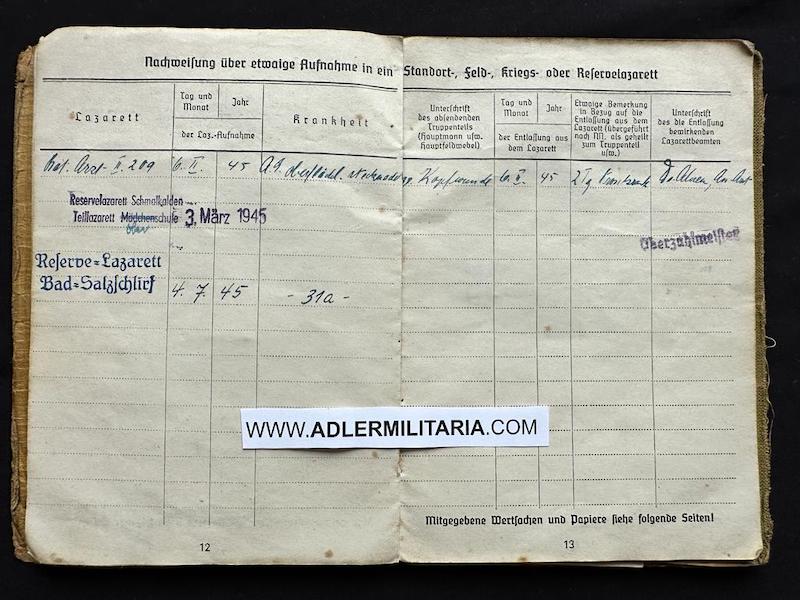 Nachweisung über etwaige Aufnahme in ein Standort-, Feld-, Kriegs- oder Reservelazarett
Lazarett
Tag und Monat
Jahr
der Laz.-Aufnahme
Krankheit
Unterschrift des absendenden Truppenteils (Hauptmann usw. Hauptfeldwebel)
Tag und Monat
Jahr
der Entlassung aus dem Lazarett
Etwaige Bemerkung in Bezug auf die Entlassung aus dem Lazarett (übergeführt nach NN. als geheilt zum Truppenteil usw.)
Unterschrift des die Entlassung bewirkenden Lazarettbeamten
II. 209 6. II. 45 Kopfwunde 6. II. 45
Reservelazarett Schmalkalden
Teillazarett Mädchenschule 3. März 1945
Oberzahlmeister
Reserve-Lazarett
Bad-Salzschlirf
4. 7. 45 - 31a -
WWW.ADLERMILITARIA.COM
Mitgegebene Wertsachen und Papiere siehe folgende Seiten!
12
13